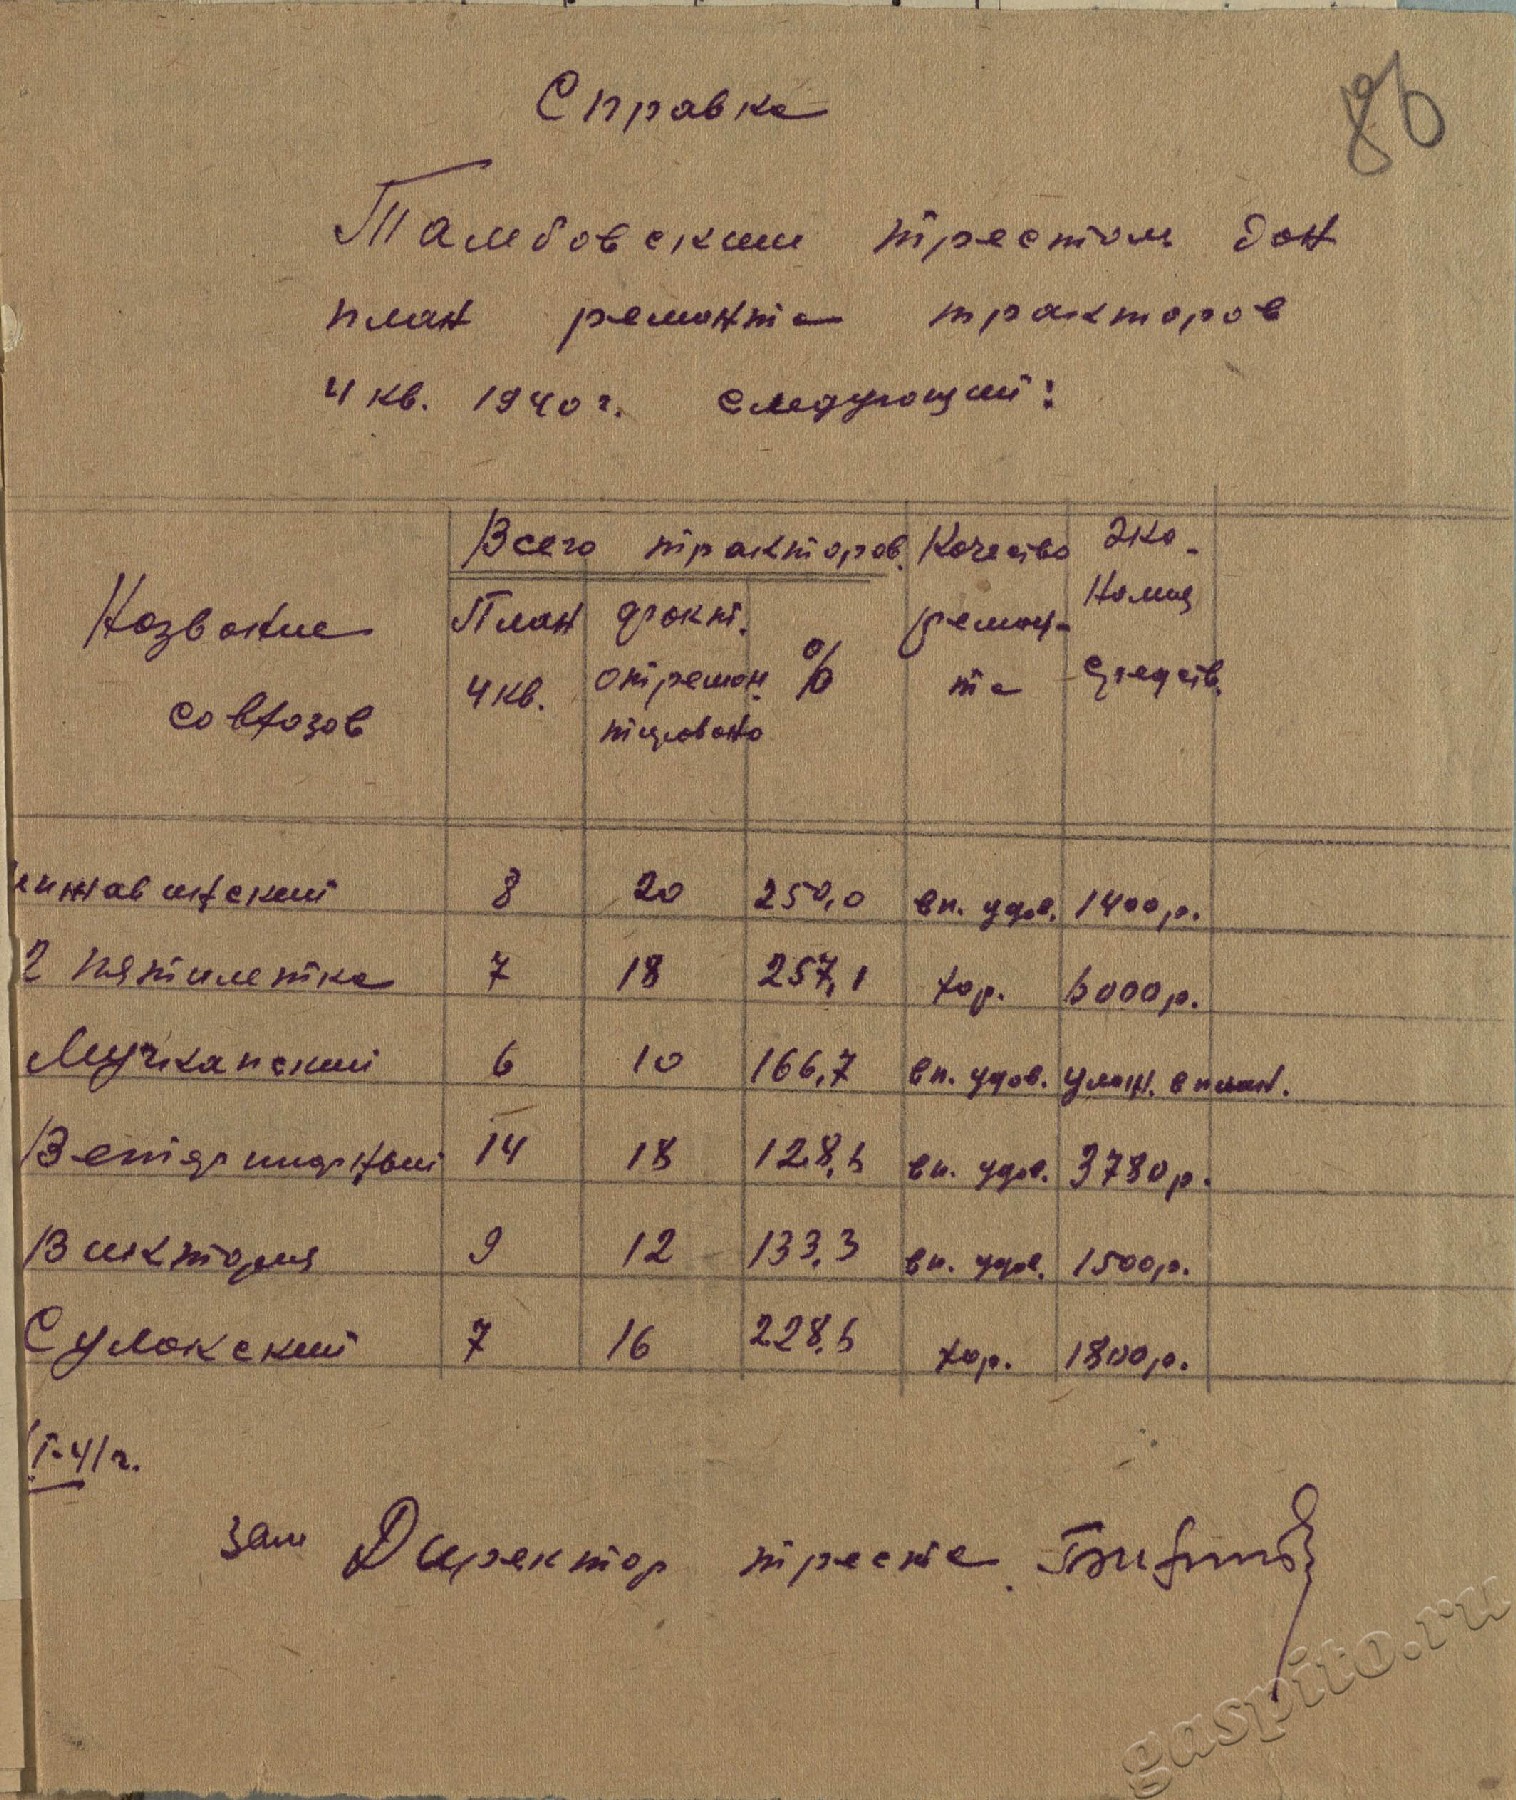 86
Справка
Тамбовским трестом дан
план ремонта тракторов
4 кв. 1940 г. следующий:
Название совхозов
Всего тракторов.
План 4 кв.
факт. отремон. тировано
%
Качество ремон- та
Эко- номия средств.
8 20 250,0 вп. удов. 1400 р.
2 пятилетка 7 18 257,1 хор. 5000 р.
Мучкапский 6 10 166,7 вп. удов. улож. в план.
14 18 128,5 вп. удов. 3780 р.
Виктория 9 12 133,3 вп. удов. 1500 р.
Сулакский 7 16 228,5 хор. 1800 р.
I-41 г.
зам Директор треста
gaspito.ru